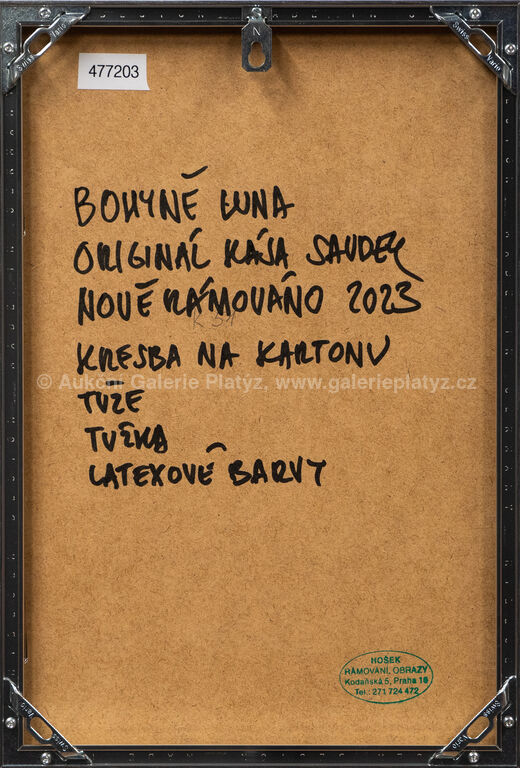 477203
N
BOHYNĚ LUNA
ORIGINÁL KÁJA SAUDEK
NOVĚ RÁMOVÁNO 2023
KRESBA NA KARTONU
© Aukční Galerie Platýz, www.galerieplatyz.cz
TUŽE
TUŽKA
LATEXOVÉ BARVY
HOŠEK
RÁMOVÁNÍ, OBRAZY
Kodaňská 5, Praha 10
Tel.: 271 724 472
Swiss Vario
Swiss Vario
Swiss Vario
Swiss Vario